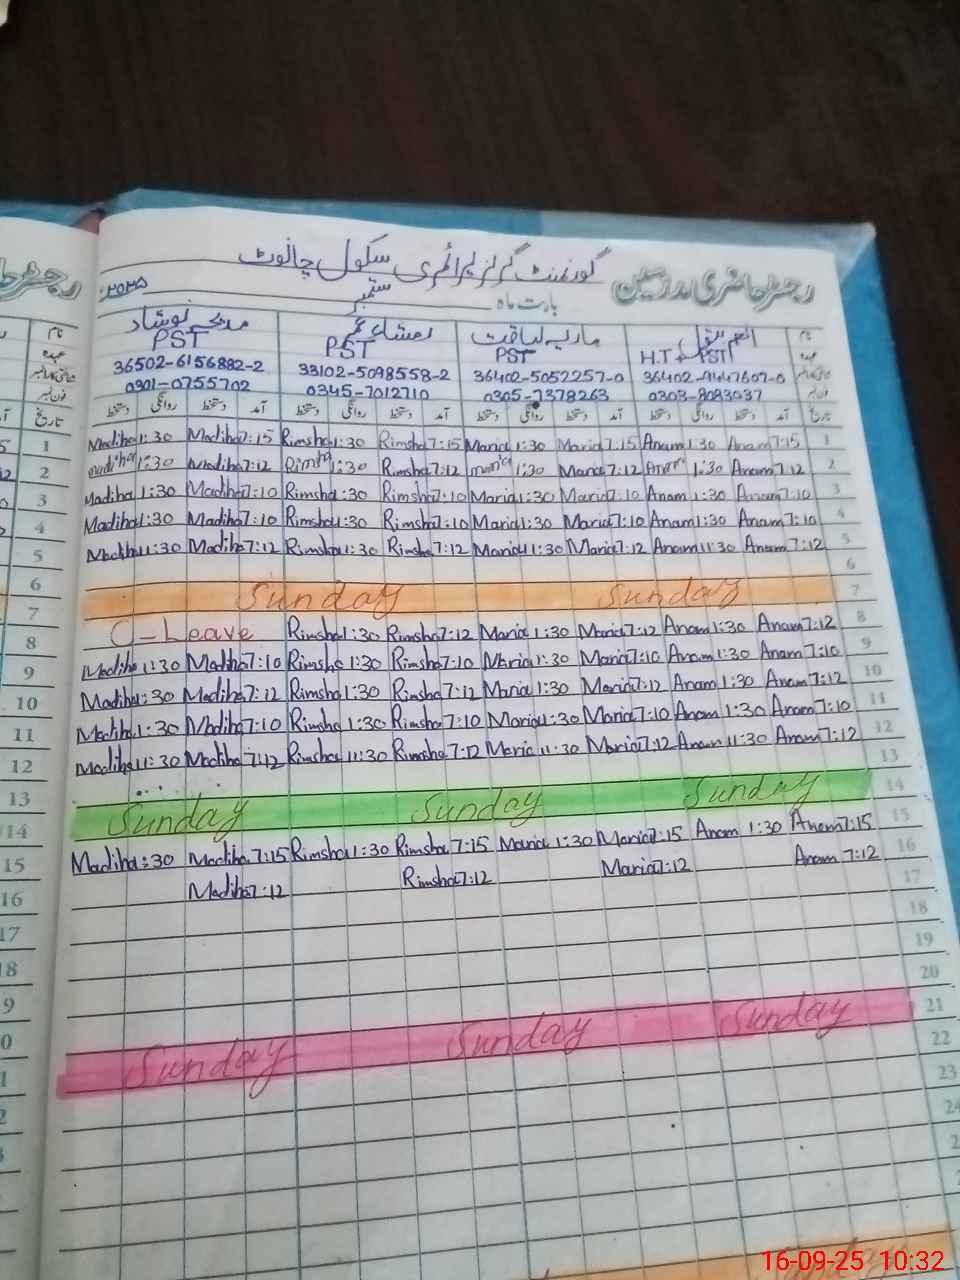 گورنمنٹ گرلز پرائمری سکول چانوٹ
رجسٹر حاضری مدرسین
بابت ماہ ستمبر ۲۰۲۵
نام مدیحہ نوشاد ماریہ لیاقت
عہدہ PST PST PST H.T PST
36502-6156882-2 33102-5098558-2 36402-5052257-0 36402-9147607-0
0301-0755702 0345-7012710 0305-7378263 0303-8083037
تاریخ آمد دستخط روانگی دستخط آمد دستخط روانگی دستخط آمد دستخط روانگی دستخط آمد دستخط روانگی دستخط
1 Madiha 1:30 Madiha 7:15 Rimsha 1:30 Rimsha 7:15 Maria 1:30 Maria 7:15 Anam 1:30 Anam 7:15 1
2 madiha 1:30 Madiha 7:12 Rimsha 1:30 Rimsha 7:12 maria 1:30 Maria 7:12 Anam 1:30 Anam 7:12 2
3 Madiha 1:30 Madiha 7:10 Rimsha 1:30 Rimsha 7:10 Maria 1:30 Maria 7:10 Anam 1:30 Anam 7:10 3
4 Madiha 1:30 Madiha 7:10 Rimsha 1:30 Rimsha 7:10 Maria 1:30 Maria 7:10 Anam 1:30 Anam 7:10 4
5 Madiha 11:30 Madiha 7:12 Rimsha 11:30 Rimsha 7:12 Maria 11:30 Maria 7:12 Anam 11:30 Anam 7:12 5
6 6
7 Sunday Sunday 7
8 C-Leave Rimsha 1:30 Rimsha 7:12 Maria 1:30 Maria 7:12 Anam 1:30 Anam 7:12 8
9 Madiha 1:30 Madiha 7:10 Rimsha 1:30 Rimsha 7:10 Maria 1:30 Maria 7:10 Anam 1:30 Anam 7:10 9
10 Madiha 1:30 Madiha 7:12 Rimsha 1:30 Rimsha 7:12 Maria 1:30 Maria 7:12 Anam 1:30 Anam 7:12 10
11 Madiha 1:30 Madiha 7:10 Rimsha 1:30 Rimsha 7:10 Maria 1:30 Maria 7:10 Anam 1:30 Anam 7:10 11
12 Madiha 11:30 Madiha 7:12 Rimsha 11:30 Rimsha 7:12 Maria 11:30 Maria 7:12 Anam 11:30 Anam 7:12 12
13 13
14 Sunday Sunday Sunday 14
15 Madiha 1:30 Madiha 7:15 Rimsha 1:30 Rimsha 7:15 Maria 1:30 Maria 7:15 Anam 1:30 Anam 7:15 15
16 Madiha 7:12 Rimsha 7:12 Maria 7:12 Anam 7:12 16
17 17
18 18
19 19
20
Sunday Sunday Sunday 21
22
23
24
16-09-25 10:32